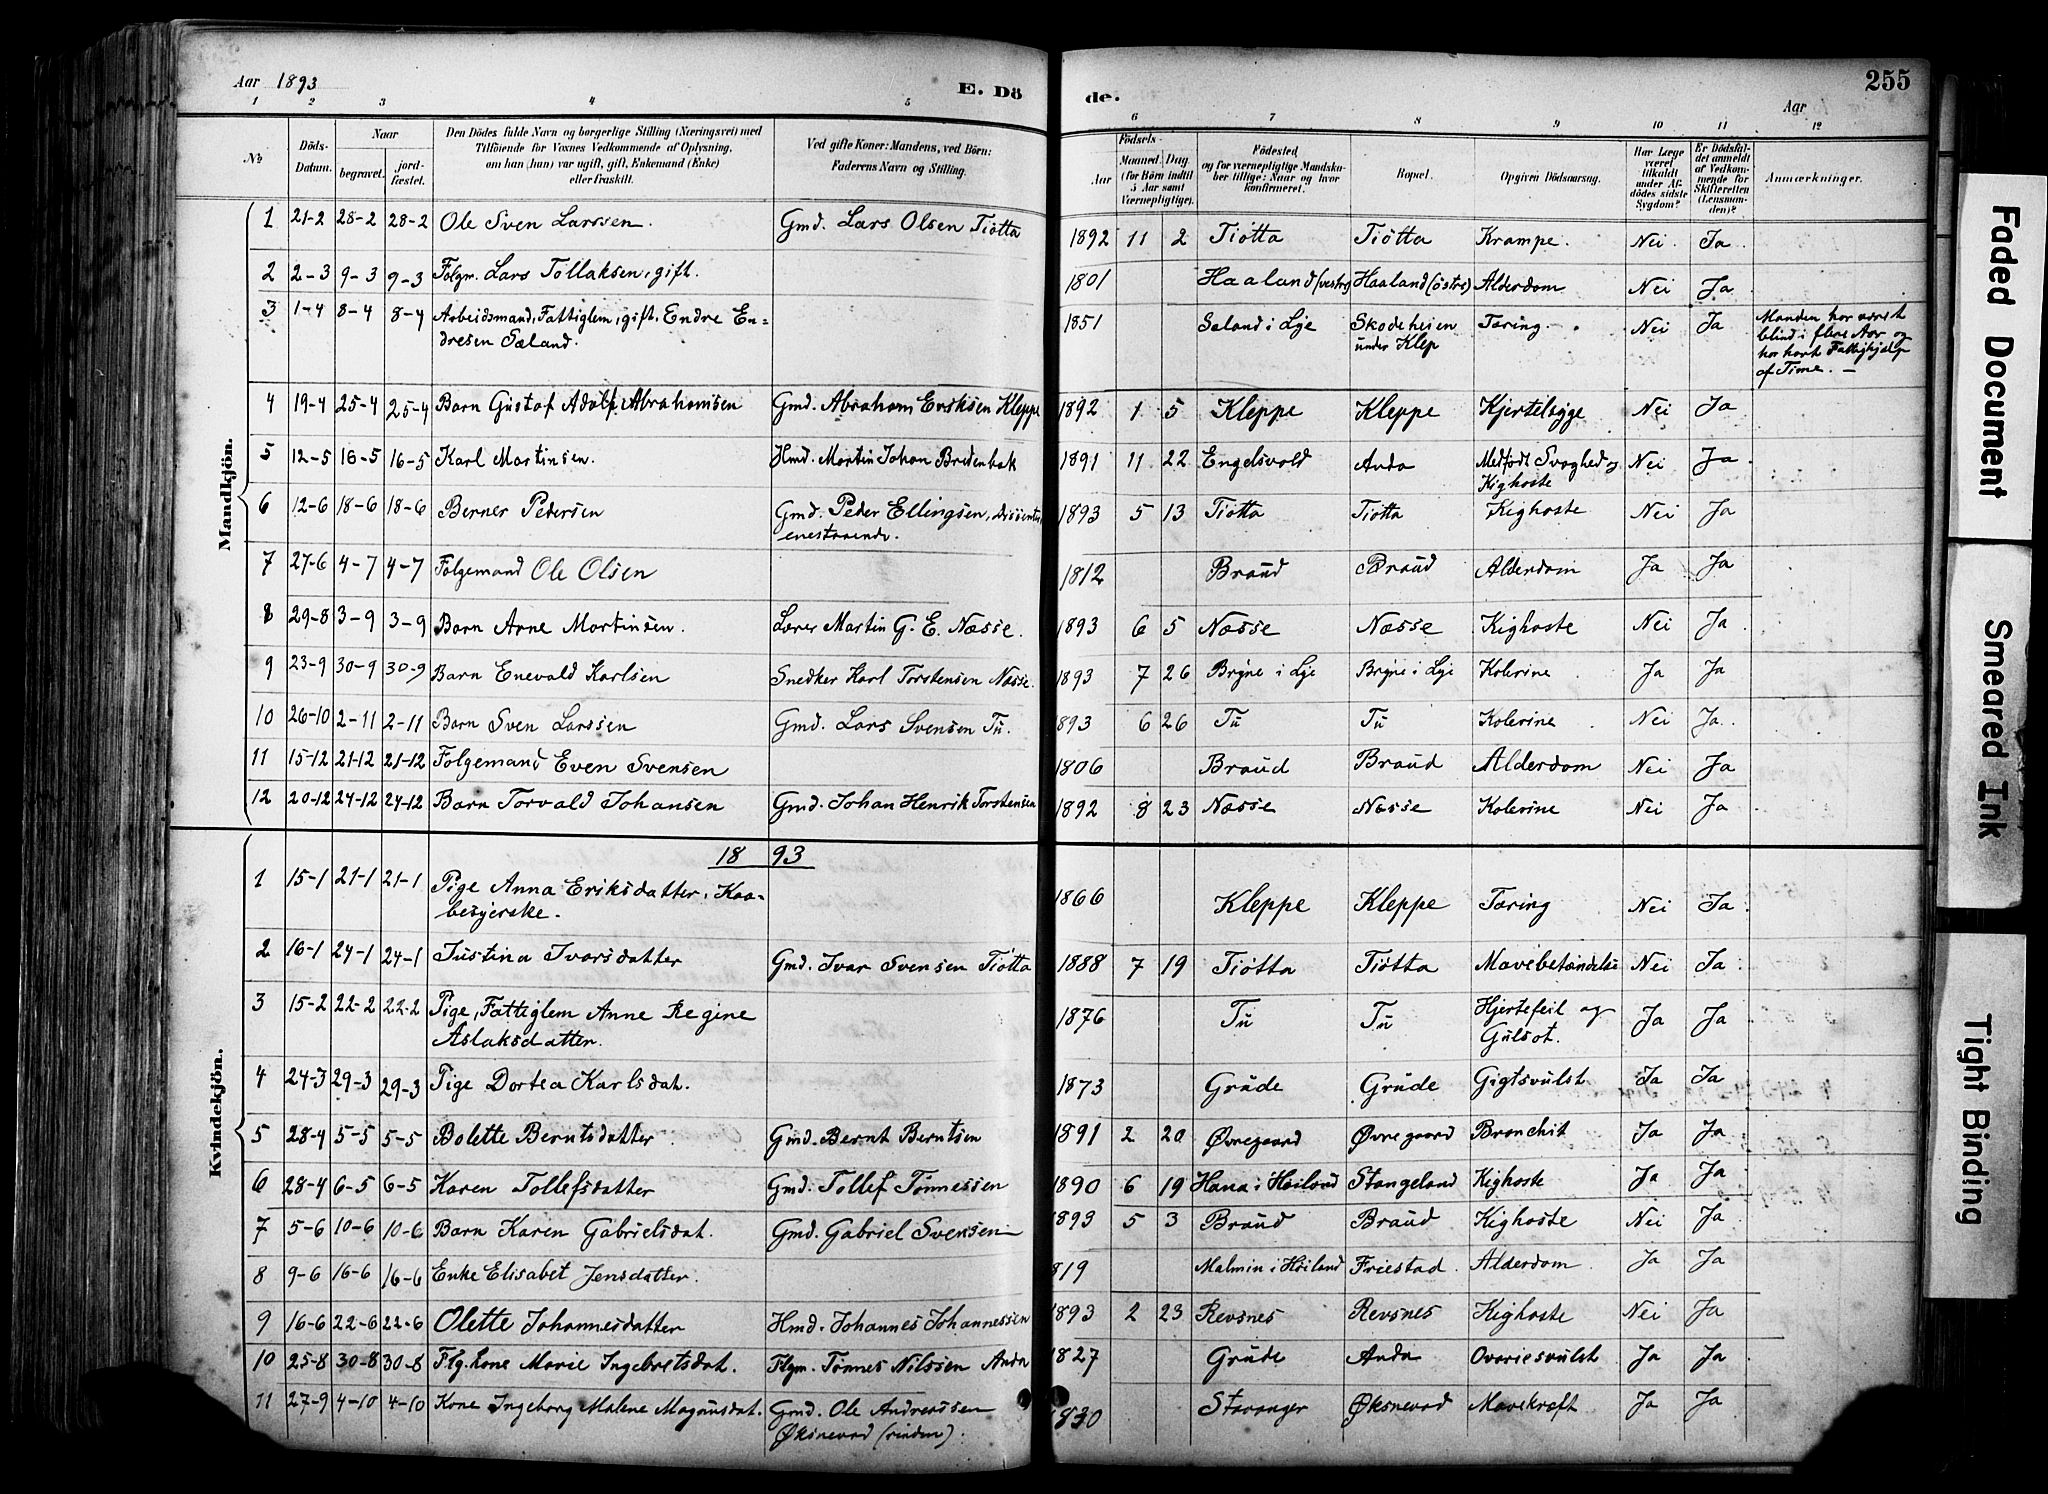 Aar 1893
E. Dö
de.
Aar
255
1 2 3 4 5 6 7 8 9 10 11 12
№
Döds-Datum.
Naar
begravet.
jord-fæstet.
Den Dödes fulde Navn og borgerlige Stilling (Næringsvei) med
Tilföiende for Voxnes Vedkommende af Oplysning,
om han (hun) var ugift, gift, Enkemand (Enke)
eller fraskilt.
Ved gifte Koner: Mandens, ved Börn:
Faderens Navn og Stilling.
Födsels-
Aar
Maaned Dag
(for Börn indtil
5 Aar samt
Værnepligtige).
Födested,
og for værnepligtige Mandsku-
ber tillige: Naar og hvor
konfirmeret.
Bopæl.
Opgiven Dödsaarsag.
Har Læge
været
tilkaldt
under Af-
dödes sidste
Sygdom?
Er Dödsfal-
det anmeldt
af Vedkom-
mende for
Skifteretten
(Lensman-
den)?
Anmærkninger.
Mandkjön.
1 21-2 28-2 28-2 Ole Sven Larssen. Gmd. Lars Olsen Tiötta 1892 11 2 Tiötta Tiötta Krampe. Nei. Ja.
2 2-3 9-3 9-3 Folgm. Lars Tollaksen, gift. 1801 Haaland (vestre) Haaland (östre) Alderdom Nei Ja
3 1-4 8-4 8-4 Arbeidsmand, Fattiglem, gift. Endre En= 1851 Sæland i Lye Skodeheien Tæring. Nei Ja Manden har været
dresen Sæland. under Klep blind i flere Aar og
har havt Fattighjælp
af Time. —
4 19-4 25-4 25-4 Barn Gustaf Adolf Abrahamsen Gmd. Abraham Eriksen Kleppe 1892 1 5 Kleppe Kleppe Kjertelsyge Nei Ja
5 12-5 16-5 16-5 Karl Martinsen. Hmd. Martin Johan Bredenbak 1891 11 22 Engelsvold Anda Medfödt Svaghed og Nei Ja
Kighoste
6 12-6 18-6 18-6 Berner Pedersen Gmd. Peder Ellingsen, 1893 5 13 Tiøtta Tiøtta Kighoste Nei Ja
enestaaende.
7 27-6 4-7 4-7 Folgemand Ole Olsen 1812 Braud Braud Alderdom Ja Ja
8 29-8 3-9 3-9 Barn Arne Martinsen. Lærer Martin G. E. Næsse. 1893 6 5 Næsse Næsse Kighoste Nei Ja
9 23-9 30-9 30-9 Barn Enevald Karlsen Snedker Karl Torstensen Næsse. 1893 7 26 Bryne i Lye Bryne i Lye Kolerine Ja Ja
10 26-10 2-11 2-11 Barn Sven Larssen Gmd. Lars Svensen Tu. 1893 6 26 Tu Tu Kolerine Nei Ja
11 15-12 21-12 21-12 Folgemand Even Svensen 1806 Braud Braud Alderdom Nei Ja
12 20-12 24-12 24-12 Barn Torvald Johansen Gmd. Johan Henrik Torstensen 1892 8 23 Næsse Næsse Kolerine Nei Ja
Kvindekjön.
1893
1 15-1 21-1 21-1 Pige Anna Eriksdatter, Kaa- 1866 Kleppe Kleppe Tæring Nei Ja
besyerske.
2 16-1 24-1 24-1 Justina Ivarsdatter Gmd. Ivar Svensen Tiötta 1888 7 19 Tiötta Tiötta Mavebetændelse Nei Ja
3 15-2 22-2 22-2 Pige, Fattiglem Anne Regine 1876 Tu Tu Hjertefeil og Ja Ja
Aslaksdatter. Gulsot.
4 24-3 29-3 29-3 Pige Dortea Karlsdat. 1873 Grude Grude Gigtsvulst Ja Ja
5 28-4 5-5 5-5 Bolette Berntsdatter Gmd. Bernt Berntsen 1891 2 20 Øvregaard Øvregaard Bronchit Ja Ja
6 28-4 6-5 6-5 Karen Tollefsdatter Gmd. Tollef Tønnessen 1890 6 19 Hana i Høiland Stangeland Kighoste Ja Ja
7 5-6 10-6 10-6 Barn Karen Gabrielsdat. Gmd. Gabriel Svensen 1893 5 3 Braud Braud Kighoste Nei Ja
8 9-6 16-6 16-6 Enke Elisabet Jensdatter. 1819 Malmin i Høiland Friestad. Alderdom. Ja Ja
9 16-6 22-6 22-6 Olette Johannesdatter Hmd. Johannes Johannessen 1893 2 23 Revsnes Revsnes Kighoste Nei Ja
10 25-8 30-8 30-8 Flg. kone Marie Ingebretsdat. Flgm. Tønnes Nilssen Anda 1827 Grude Anda Ovariesvulst Ja Ja
11 27-9 4-10 4-10 Kone Ingeborg Malene Magnusdat. Gmd. Ole Andreassen 1830 Stavanger Øksnevad Mavekræft Ja Ja
Øksnevad (vinden).
Faded Document
Smeared Ink
Tight Binding